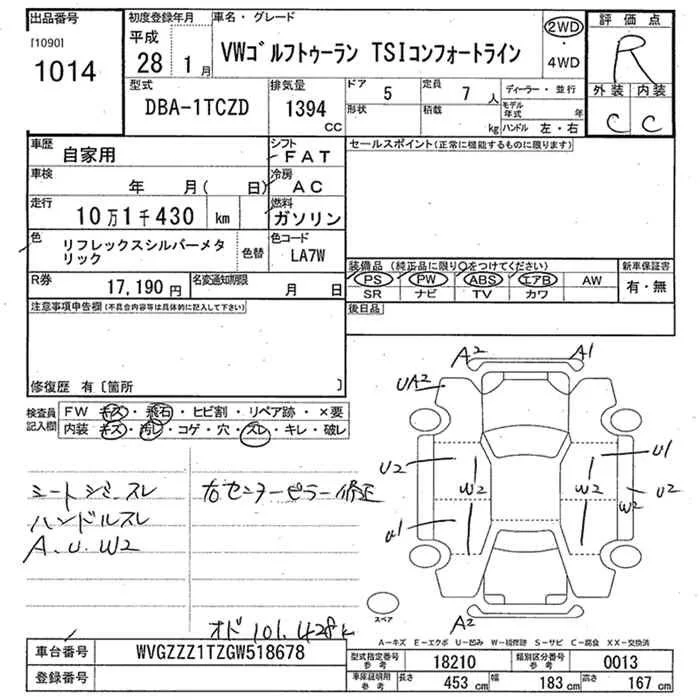 出品番号 初度登録年月 車名・グレード 評価点
[1090] 1014 平成 28 1月 VWゴルフトゥーラン TSIコンフォートライン 2WD ・ 4WD R
型式 排気量 ドア 5 定員 7人 ディーラー・並行 外装 内装
DBA-1TCZD 1394 CC 形状 積載 kg モデル年式 年 ハンドル 左・右 C C
車歴 自家用 シフト FAT セールスポイント(正常に機能するものに限ります)
車検 年 月( 日) 冷房 AC
走行 10万1千430 km 燃料 ガソリン
色 リフレックスシルバーメタリック 色替 色コード LA7W
装備品(純正品に限り○をつけてください) 新車保証書
PS PW ABS エアB AW 有・無
SR ナビ TV カワ
R券 17,190円 名変通知期限 月 日
後日品
注意事項申告欄(不具合内容等は具体的に記入して下さい)
修復歴 有〔箇所 〕
検査員記入欄 FW キズ・飛石・ヒビ割・リペア跡・×要
内装 キズ・汚レ・コゲ・穴・スレ・キレ・破レ
シートシミ.スレ 右センターピラー修正
ハンドルスレ
A.U.W2
オド101.428k
A2 A1
UA2
U2 W2 W2 U1
W2 U2
U1
A2
スペア
A−キズ E−エクボ U−凹み W−補修跡 S−サビ C−腐食 XX−交換済
車台番号 WVGZZZ1TZGW518678
登録番号
型式指定番号 参考 18210 類別区分番号 参考 0013
車庫証明用 参考 長さ 453 cm 幅 183 cm 高さ 167 cm